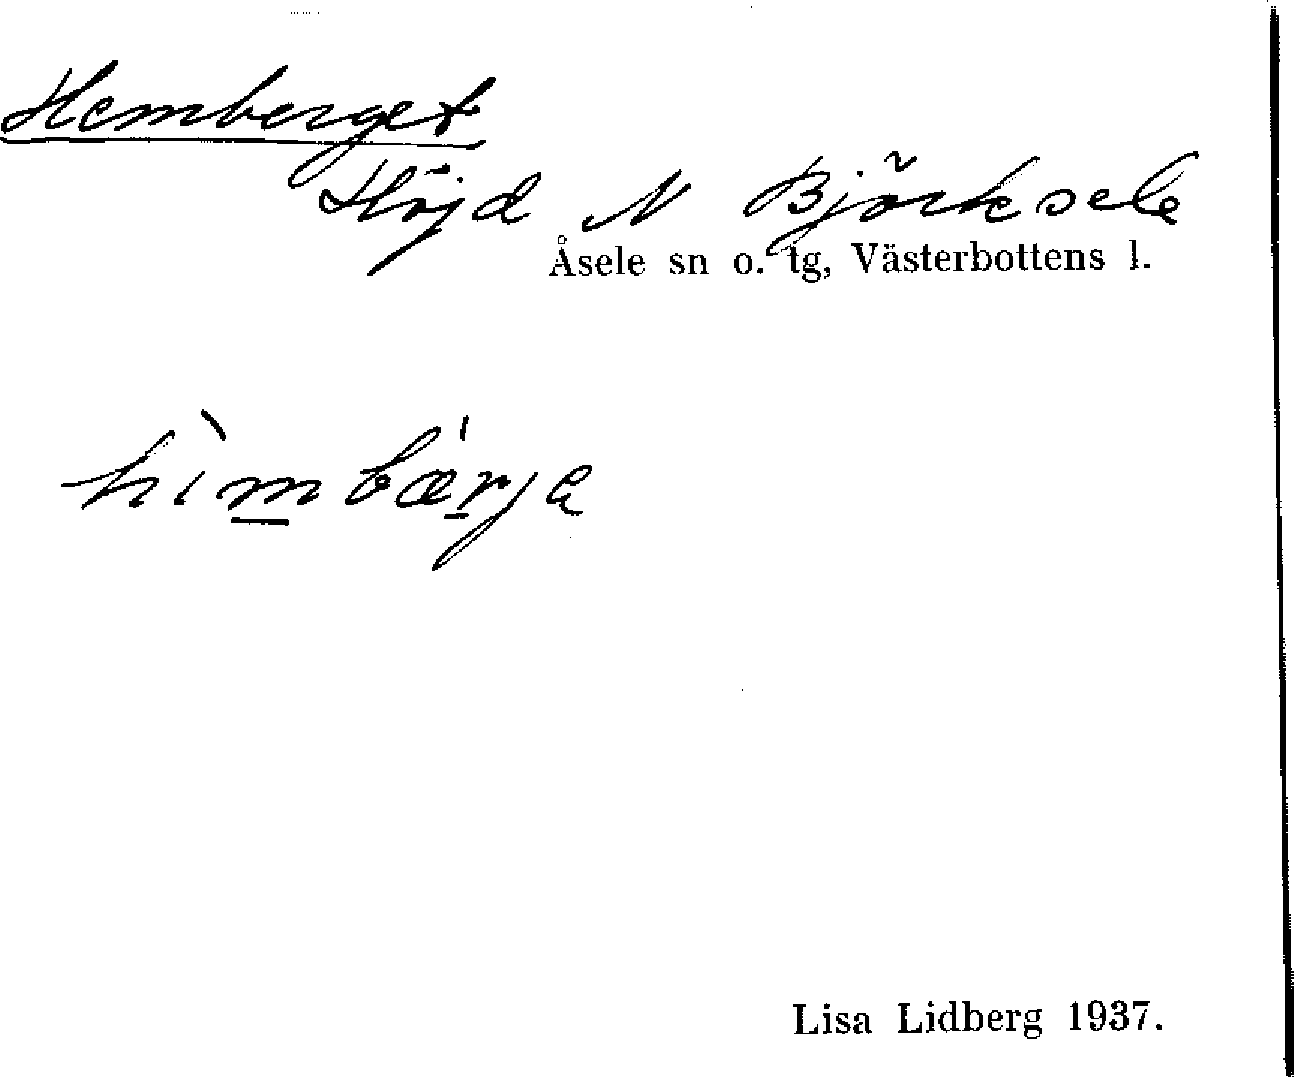 Hemberget
Höjd N Björksele
Åsele sn o. tg, Västerbottens l.
hìmbǽrja
Lisa Lidberg 1937.